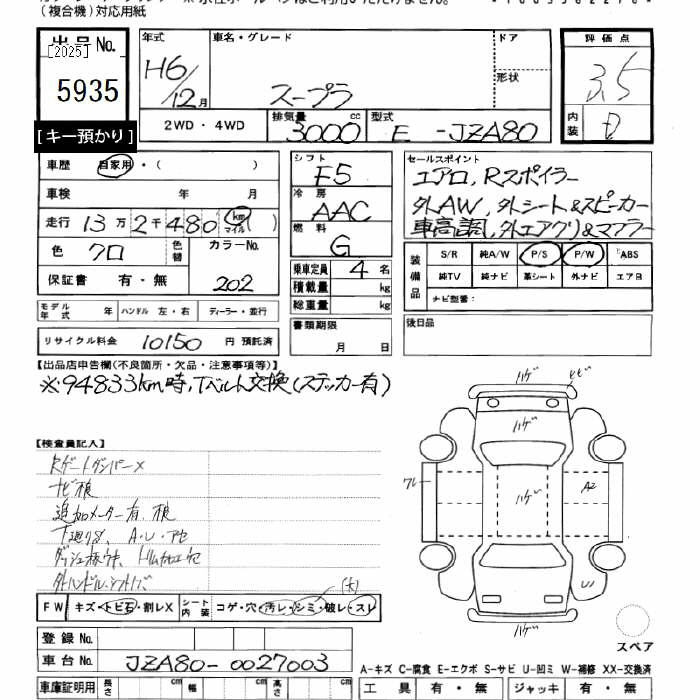 (複合機)対応用紙
出品No.
[2025]
5935
[キー預かり]
年式
H6/12月
車名・グレード
スープラ
ドア
形状
評価点
3.5
内装
D
2WD・4WD
排気量 3000 cc
型式 E-JZA80
車歴 自家用・( )
車検 年 月
走行 13万2千480 km マイル ( )
色 クロ 色替 カラーNo. 202
保証書 有・無
モデル年式 年 ハンドル 左・右 ディーラー・並行
リサイクル料金 10150 円 預託済
シフト F5
冷房 AAC
燃料 G
乗車定員 4 名
積載量 kg
総重量 kg
書類期限
月 日
セールスポイント
エアロ,Rスポイラー
外AW,外シート&スピーカー
車高調,外エアクリ&マフラー
装備品
S/R 純A/W P/S P/W ABS
純TV 純ナビ 革シート 外ナビ エアB
ナビ型番:
後日品
【出品店申告欄(不良箇所・欠品・注意事項等)】
※94833km時,Tベルト交換(ステッカー有)
【検査員記入】
ナビ根
追加メーター有、根
下廻りサビ、A・U・アセ
FW キズ・トビ石・割レX シート内装 コゲ・穴・汚レ・シミ・破レ・スレ
(大)
ハゲ
ハゲ
ハゲ
ハゲ
A2
登録No.
車台No. JZA80-0027003
車庫証明用 長さ cm 幅 cm 高さ cm
スペア
A-キズ C-腐食 E-エクボ S-サビ U-凹ミ W-補修 XX-交換済
工具 有・無 ジャッキ 有・無